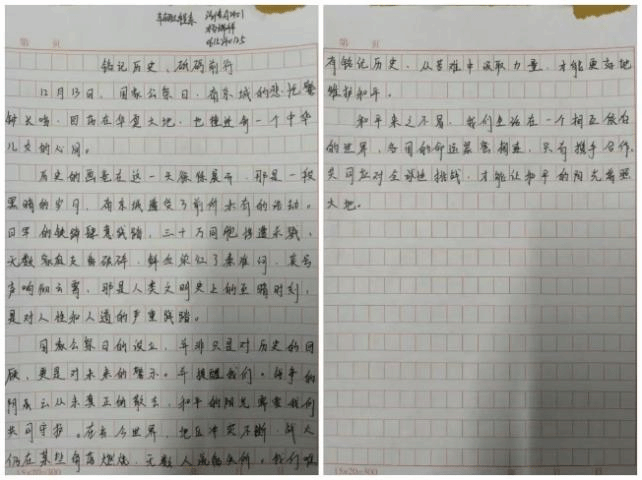 第 页
铭记历史、砥砺前行
12月13日,国家公祭日,南京城的悲怆警
钟长鸣,回荡在华夏大地,也撞进每一个中华
儿女的心间。
历史的画卷在这一天缓缓展开,那是一段
黑暗的岁月,南京城遭受了前所未有的浩劫。
日军的铁蹄肆意践踏,三十万同胞惨遭杀戮,
无数家庭支离破碎,鲜血染红了秦淮河,哀号
声响彻云霄,那是人类文明史上的至暗时刻,
是对人性和人道的严重践踏。
国家公祭日的设立,并非只是对历史的回
顾,更是对未来的警示。它提醒我们,战争的
阴云从未真正的散去,和平的阳光需要我们
共同守护。在当今世界,地区冲突不断,战火
仍在某些角落燃烧,无数人流离失所。我们唯
15×20=300
第 页
有铭记历史,从苦难中汲取力量,才能更好地
维护和平。
和平来之不易,我们生活在一个相互依存
的世界,各国的命运紧密相连,只有携手合作,
共同应对全球性挑战,才能让和平的阳光普照
大地。